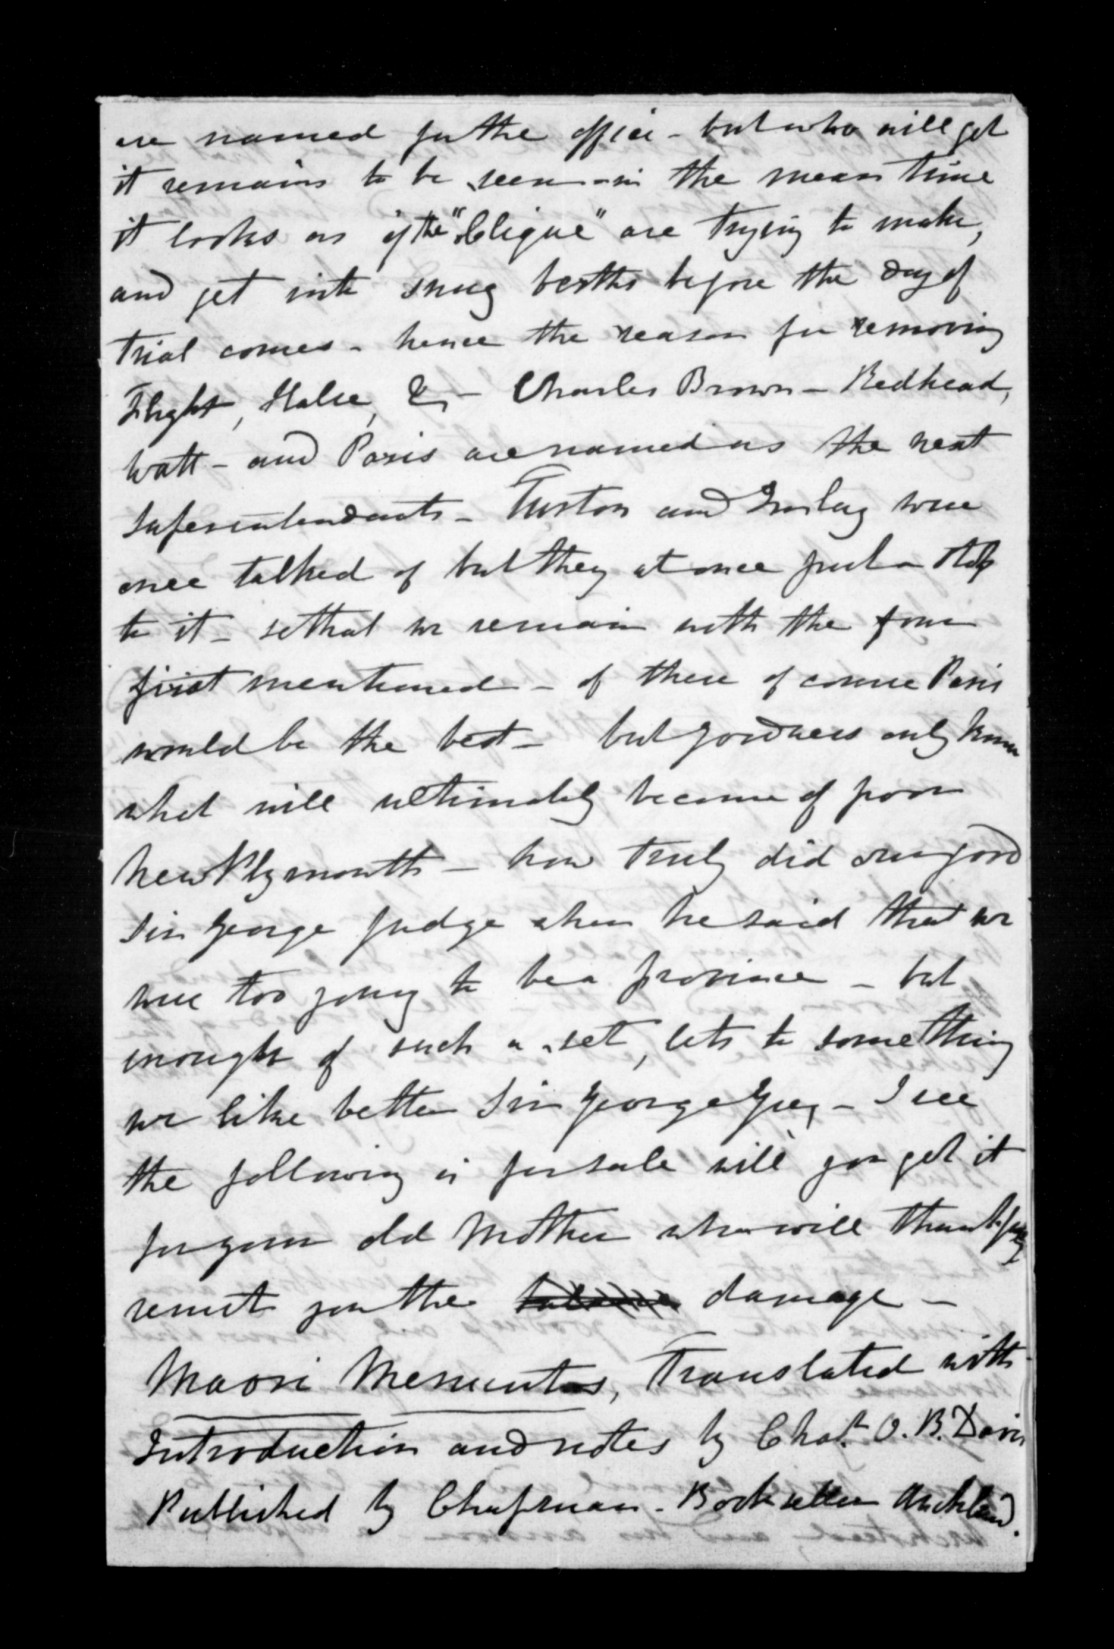 are named for the office - but who will get
it remains to be seen - in the mean time
it looks as if the "Clique" are trying to make,
and get into snug berths before the day of
trial comes - hence the reason for removing
Flight, Halse, &c - Charles Brown - Redhead,
Watt - and Paris are named as the next
Superintendants - Turton and Imlay were
once talked of but they at once put a stop
to it - so that we remain with the four
first mentioned - of these of course Paris
would be the best - but goodness only knows
what will ultimately become of poor
New Plymouth - how truly did our good
Sir George judge when he said that we
were too young to be a province - but
enough of such a set, lets to something
we like better Sir George Grey - I see
the following is for sale will you get it
for your old Mother who will thankfully
remit you the damage -
Maori Mementos, Translated with
Introduction and notes by Chas. O. B. Davis
Published by Chapman - Bookseller Auckland.